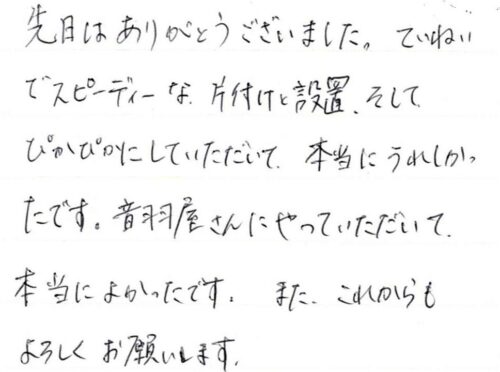 先日はありがとうございました。ていねい
でスピーディーな片付けと設置、そして
ぴかぴかにしていただいて、本当にうれしかっ
たです。音羽屋さんにやっていただいて、
本当によかったです。また、これからも
よろしくお願いします。